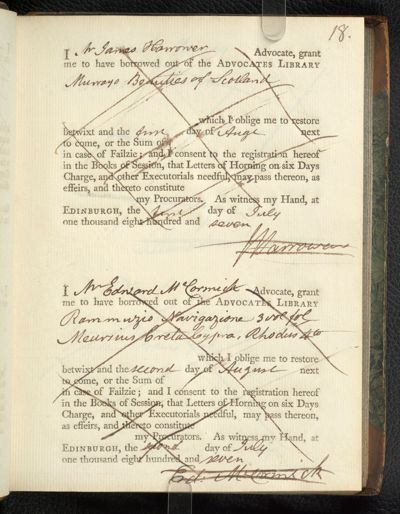 18.
I Mr James Harrower Advocate, grant
me to have borrowed out of the ADVOCATES LIBRARY
Murrays Beauties of Scotland
which I oblige me to restore
betwixt and the first day of Augt next
to come, or the Sum of
in case of Failzie; and I consent to the registration hereof
in the Books of Session, that Letters of Horning on six Days
Charge, and other Executorials needful, may pass thereon, as
effeirs, and thereto constitute
my Procurators. As witness my Hand, at
EDINBURGH, the first day of July
one thousand eight hundred and seven
J Harrower
I Mr Edward McCormick Advocate, grant
me to have borrowed out of the ADVOCATES LIBRARY
Rammuzio Navigazione 3 vol fol
Meursius Creta Cyprus, Rhodus 4to
which I oblige me to restore
betwixt and the second day of August next
to come, or the Sum of
in case of Failzie; and I consent to the registration hereof
in the Books of Session, that Letters of Horning on six Days
Charge, and other Executorials needful, may pass thereon,
as effeirs, and thereto constitute
my Procurators. As witness my Hand, at
EDINBURGH, the second day of July
one thousand eight hundred and seven
Ed: McCormick